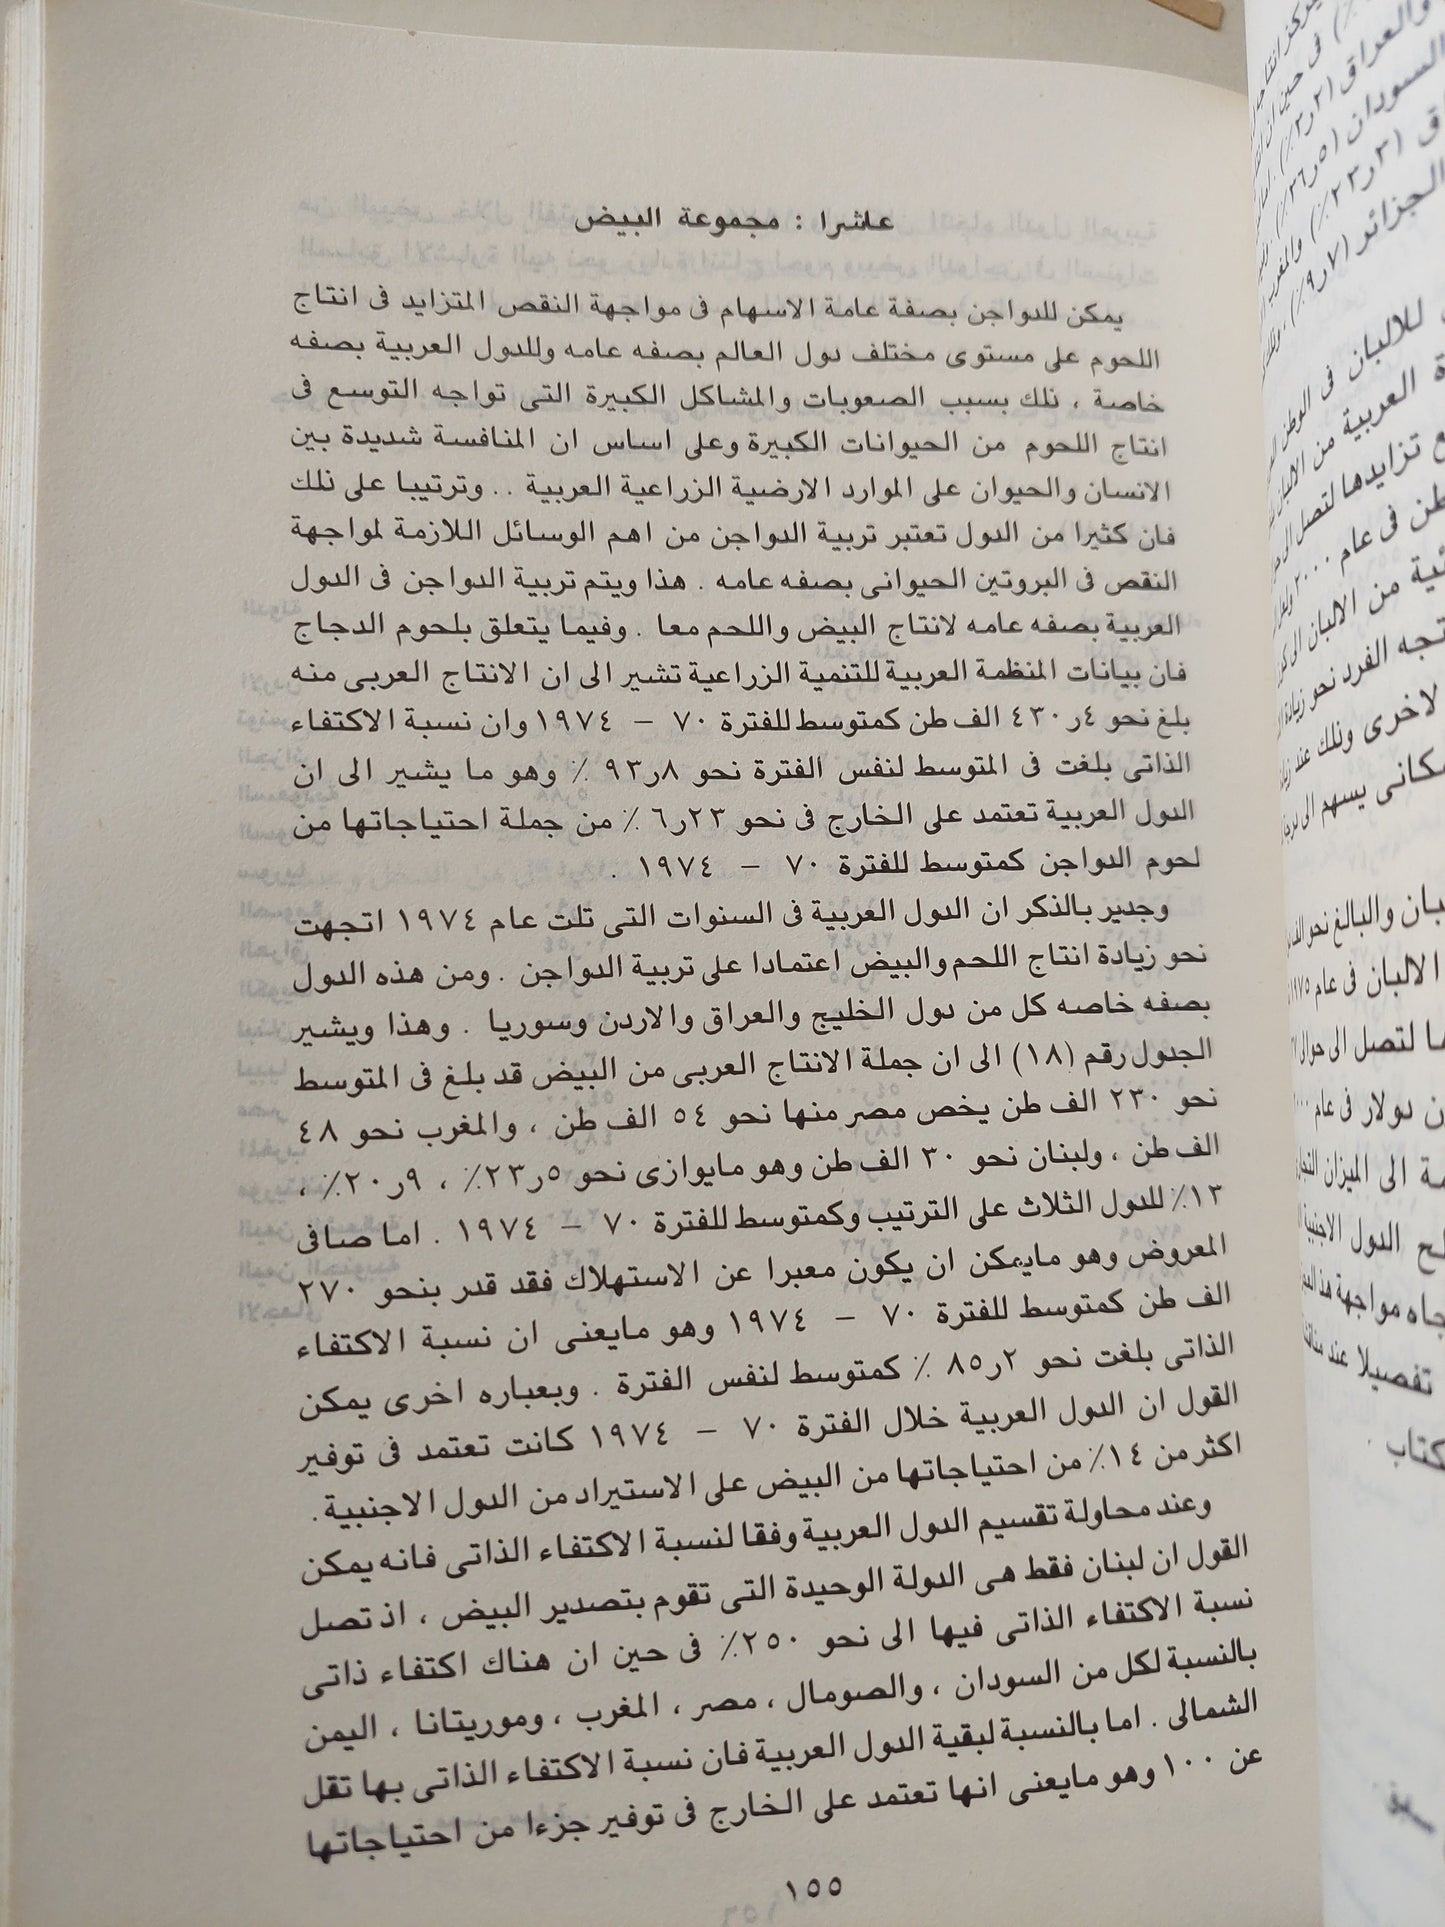 عاشرا : مجموعة البيض
يمكن للدواجن بصفة عامة الاسهام فى مواجهة النقص المتزايد فى انتاج
اللحوم على مستوى مختلف دول العالم بصفه عامه وللدول العربية بصفه
خاصة ، ذلك بسبب الصعوبات والمشاكل الكبيرة التى تواجه التوسع فى
انتاج اللحوم من الحيوانات الكبيرة وعلى اساس ان المنافسة شديدة بين
الانسان والحيوان على الموارد الارضية الزراعية العربية . . وترتيبا على ذلك
فان كثيرا من الدول تعتبر تربية الدواجن من اهم الوسائل اللازمة لمواجهة
النقص فى البروتين الحيوانى بصفه عامه . هذا ويتم تربية الدواجن فى الدول
العربية بصفه عامه لانتاج البيض واللحم معا . وفيما يتعلق بلحوم الدجاج
فان بيانات المنظمة العربية للتنمية الزراعية تشير الى ان الانتاج العربى منه
بلغ نحو ٤ر٤٣٠ الف طن كمتوسط للفترة ٧٠ – ١٩٧٤ وان نسبة الاكتفاء
الذاتى بلغت فى المتوسط لنفس الفترة نحو ٨ر٩٣ ٪ وهو ما يشير الى ان
الدول العربية تعتمد على الخارج فى نحو ٢٣ر٦ ٪ من جملة احتياجاتها من
لحوم الدواجن كمتوسط للفترة ٧٠ – ١٩٧٤ .
وجدير بالذكر ان الدول العربية فى السنوات التى تلت عام ١٩٧٤ اتجهت
نحو زيادة انتاج اللحم والبيض اعتمادا على تربية الدواجن . ومن هذه الدول
بصفه خاصه كل من دول الخليج والعراق والاردن وسوريا . وهذا ويشير
الجدول رقم (١٨) الى ان جملة الانتاج العربى من البيض قد بلغ فى المتوسط
نحو ٢٣٠ الف طن يخص مصر منها نحو ٥٤ الف طن ، والمغرب نحو ٤٨
الف طن ، ولبنان نحو ٣٠ الف طن وهو مايوازى نحو ٥ر٢٣٪ ، ٩ر٢٠٪ ،
١٣٪ للدول الثلاث على الترتيب وكمتوسط للفترة ٧٠ – ١٩٧٤ . اما صافى
المعروض وهو مايمكن ان يكون معبرا عن الاستهلاك فقد قدر بنحو ٢٧٠
الف طن كمتوسط للفترة ٧٠ – ١٩٧٤ وهو مايعنى ان نسبة الاكتفاء
الذاتى بلغت نحو ٢ر٨٥ ٪ كمتوسط لنفس الفترة . وبعباره اخرى يمكن
القول ان الدول العربية خلال الفترة ٧٠ – ١٩٧٤ كانت تعتمد فى توفير
اكثر من ١٤٪ من احتياجاتها من البيض على الاستيراد من الدول الاجنبية .
وعند محاولة تقسيم الدول العربية وفقا لنسبة الاكتفاء الذاتى فانه يمكن
القول ان لبنان فقط هى الدولة الوحيدة التى تقوم بتصدير البيض ، اذ تصل
نسبة الاكتفاء الذاتى فيها الى نحو ٢٥٠٪ فى حين ان هناك اكتفاء ذاتى
بالنسبة لكل من السودان ، والصومال ، مصر ، المغرب ، وموريتانا ، اليمن
الشمالى . اما بالنسبة لبقية الدول العربية فان نسبة الاكتفاء الذاتى بها تقل
عن ١٠٠ وهو مايعنى انها تعتمد على الخارج فى توفير جزءا من احتياجاتها
١٥٥